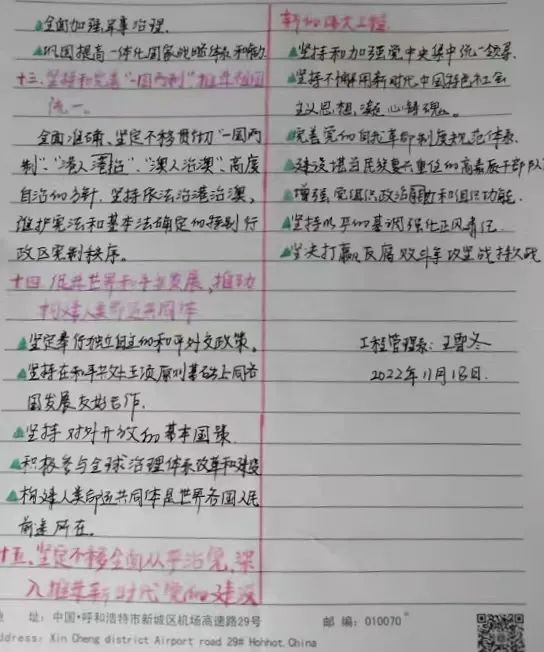 全面加强军事治理.
巩固提高一体化国家战略体系和能力
十三.坚持和完善“一国两制”推进祖国
统一。
全面准确、坚定不移贯彻“一国两
制”、“港人治港”、“澳人治澳”、高度
自治的方针.坚持依法治港治澳,
维护宪法和基本法确定的特别行
政区宪制秩序。
十四.促进世界和平与发展,推动
构建人类命运共同体
坚定奉行独立自主的和平外交政策。
坚持在和平共处五项原则基础上同各
国发展友好合作.
坚持对外开放的基本国策
积极参与全球治理体系改革和建设
构建人类命运共同体是世界各国人民
前途所在。
十五、坚定不移全面从严治党,深
入推进新时代党的建设
新的伟大工程
坚持和加强党中央集中统一领导
坚持不懈用新时代中国特色社会
主义思想,凝心铸魂。
完善党的自我革命制度规范体系
建设堪当民族复兴重任的高素质干部队
增强党组织政治功能和组织功能.
坚持以严的基调强化正风肃纪
坚决打赢反腐败斗争攻坚战持久战
工程管理系:王雪冬
2022年11月18日.
址:中国·呼和浩特市新城区机场高速路29号 邮 编:010070
ddress: Xin Cheng district Airport road 29# Hohhot. China